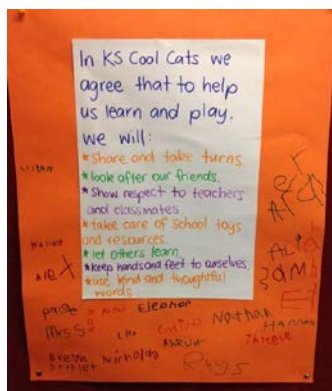 In KS Cool Cats we
agree that to help
us learn and play.
we will:
*Share and take turns.
*look after our friends.
*Show respect to teachers
and classmates.
*take care of school toys
and resources.
*let others learn
*keep hands and feet to ourselves.
*use kind and thoughtful
words.
Eleanor
paige
Nathan
Mrs.S
Lila
Emily
Hannah
Nicholas
Rhys